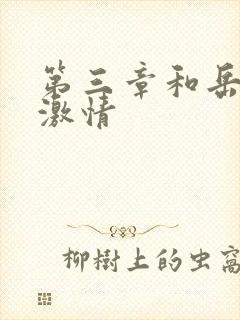 第三章和岳
激情
柳樹上的虫窩